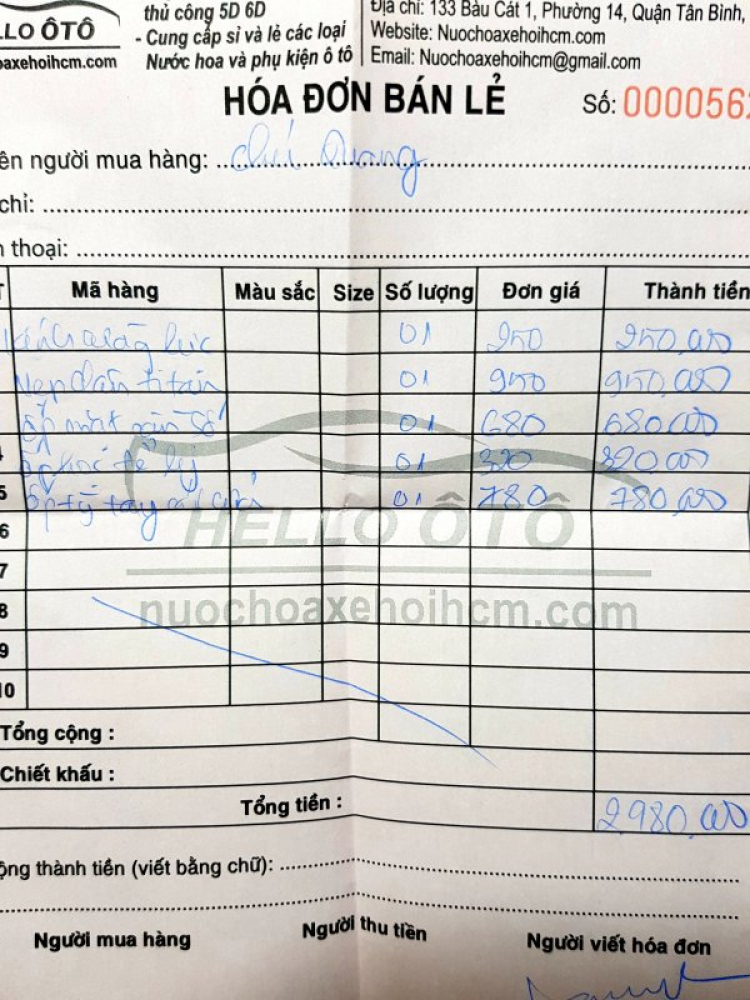 LLO ÔTÔ
oaxehoihcm.com
thủ công 5D 6D
- Cung cấp sỉ và lẻ các loại
Nước hoa và phụ kiện ô tô
Địa chỉ: 133 Bàu Cát 1, Phường 14, Quận Tân Bình,
Website: Nuochoaxehoihcm.com
Email: Nuochoaxehoihcm@gmail.com
HÓA ĐƠN BÁN LẺ
Số: 0000562
ên người mua hàng: Chú Quang
chỉ:
n thoại:
T Mã hàng Màu sắc Size Số lượng Đơn giá Thành tiền
01 250 250,000
Nẹp titan 01 950 950,000
ốp mặt số 01 680 680,000
4 ốp 01 320 320,000
5 ốp tỳ tay 01 780 780,000
6
7
8
9
10
HELLO ÔTÔ
nuochoaxehoihcm.com
Tổng cộng :
Chiết khấu :
Tổng tiền : 2980,000
ộng thành tiền (viết bằng chữ):
Người mua hàng Người thu tiền Người viết hóa đơn